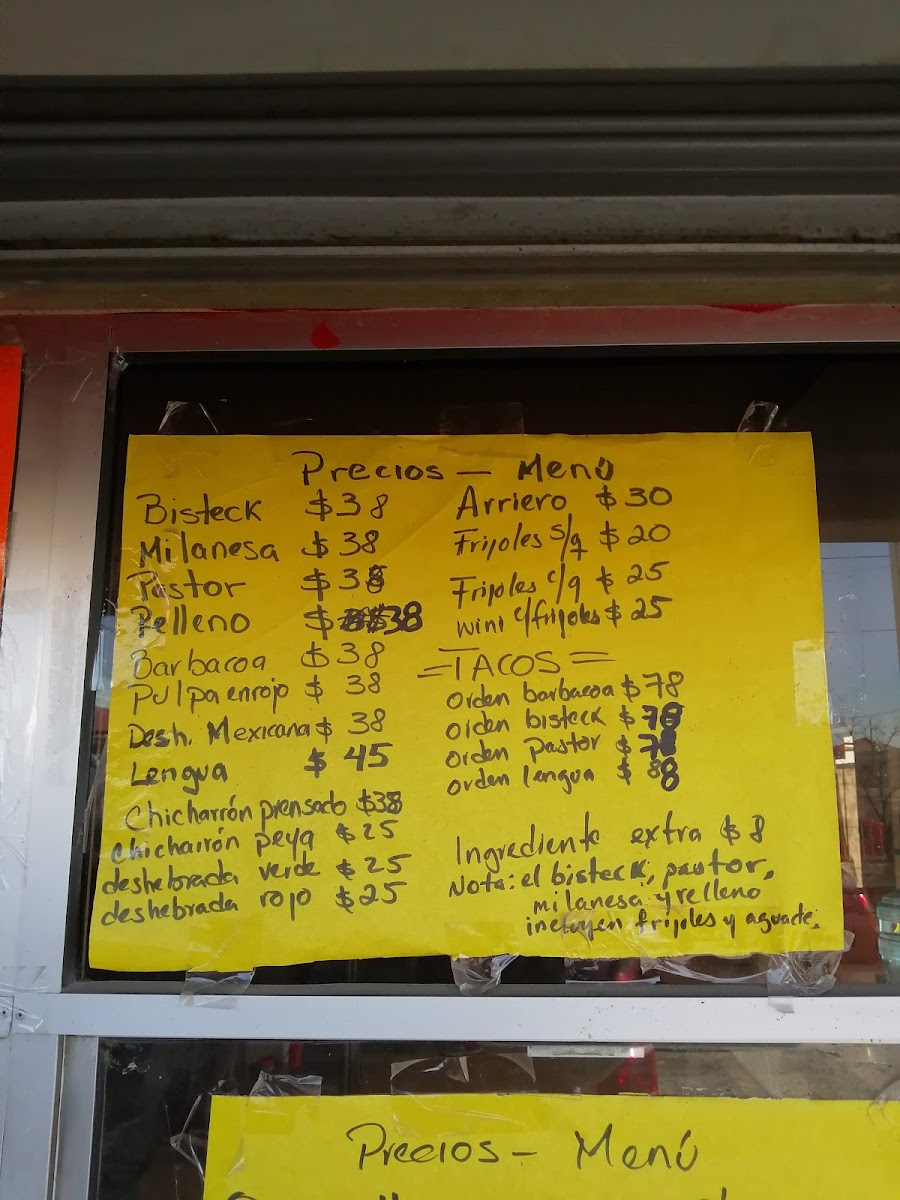 Precios - Menú
Bisteck $38
Milanesa $38
Pastor $38
Relleno $38
Barbacoa $38
Pulpa en rojo $ 38
Desh. Mexicana $ 38
Lengua $ 45
Chicharrón prensado $38
chicharrón peya $25
deshebrada verde $25
deshebrada rojo $25
Arriero $30
Frijoles s/q $20
Frijoles c/q $25
wini c/frijoles $25
=TACOS=
orden barbacoa $78
orden bisteck $78
orden pastor $78
orden lengua $88
Ingrediente extra $8
Nota: el bisteck, pastor,
milanesa y relleno
incluyen frijoles y aguacte.
Precios - Menú